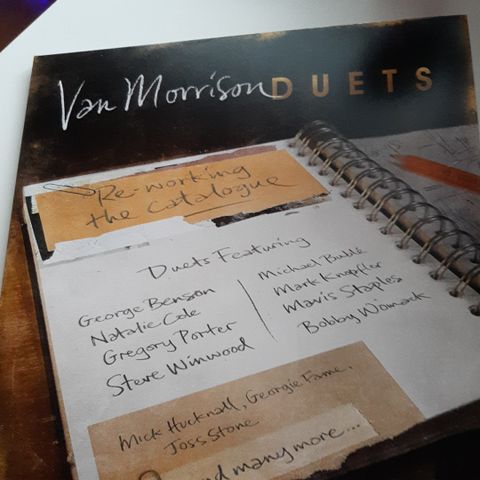 Van Morrison DUETS
Re-working
the Catalogue
Duets Featuring
George Benson
Natalie Cole
Gregory Porter
Steve Winwood
Michael Bublé
Mark Knopfler
Mavis Staples
Bobby Womack
Mick Hucknall, Georgie Fame,
Joss Stone
and many more...